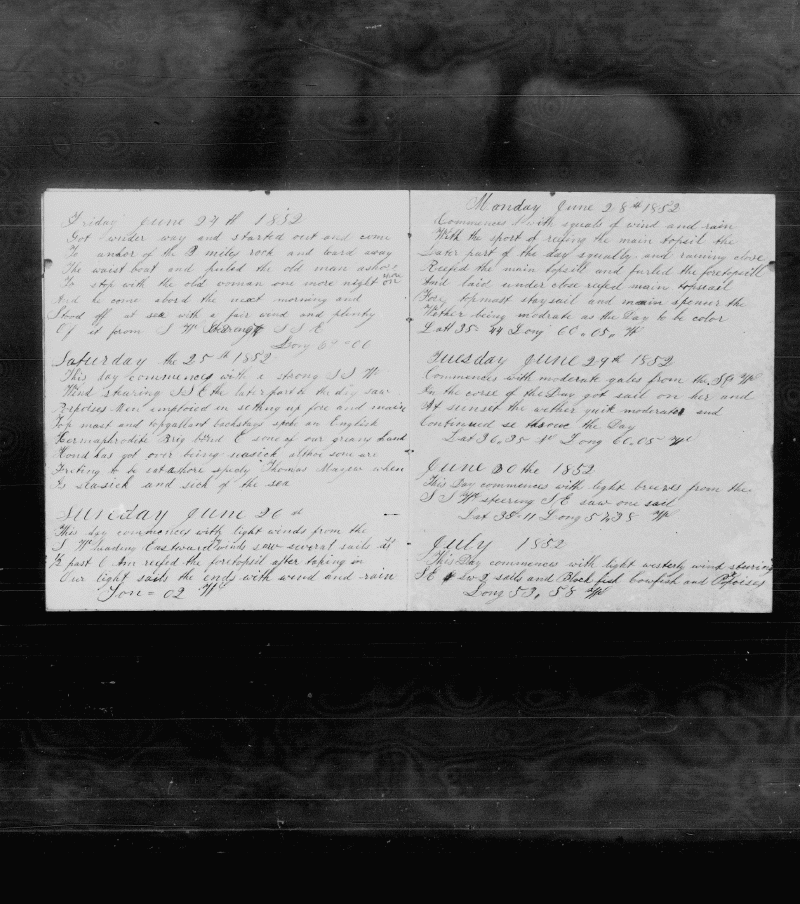 Friday June 24th 1852
Got under way and started out and come
To anchor of the 3 miles rock and loard away
The waist boat and pulled the old man ashore
To stop with the old woman one more night on shore
And he come abord the next morning and
Stood off at sea with a fair wind and plenty
Of it from S W Steering S S E
Long 69=00
Saturday the 25th 1852
This day commences with a strong S S W
Wind stearing SSE the later part of the day saw
Porpoises Men employed in setting up fore and main
Top mast and topgallant backstays spoke an English
Hermaphrodite Brig bound E some of our greens hand
Hond has got over being seasick altho some are
Freting to be set ashore speedy Thomas Mayers when
Is seasick and sick of the sea
Sunday June 26th
This day commences with light winds from the
S W heading Eastward winds saw several sails at
½ past 6 Am reefed the foretopsil after taking in
Our light sails the ends with wind and rain
Lon = 02 W
Monday June 28th 1852
Commences with squals of wind and rain
With the sport of refing the main topsil the
Later part of the day squally and raining close
Reefed the main topsile and furled the foretopsill
And laid under close reefed main topsail
Fore topmast stay sail and main spencer the
Wether being modrate as the Day to be color
Latt 35-44 Long 60.05. W
Tuesday June 29th 1852
Commences with moderate gales from the SS W
In the corse of the Day got sail on her and
At sunset the wether quit moderate and
Continued so throue the Day
Lat 36.35 N Long 60.05 W
June 30 the 1852
This Day commences with light breezes from the
S S W steering S.E saw one sail
Lat 38-11 Long 57.38 W
July 1852
This Day commences with light westerly wind steering
S.E saw 2 sails and Black fish Cowfish and Popoises
Long 53, 58 W